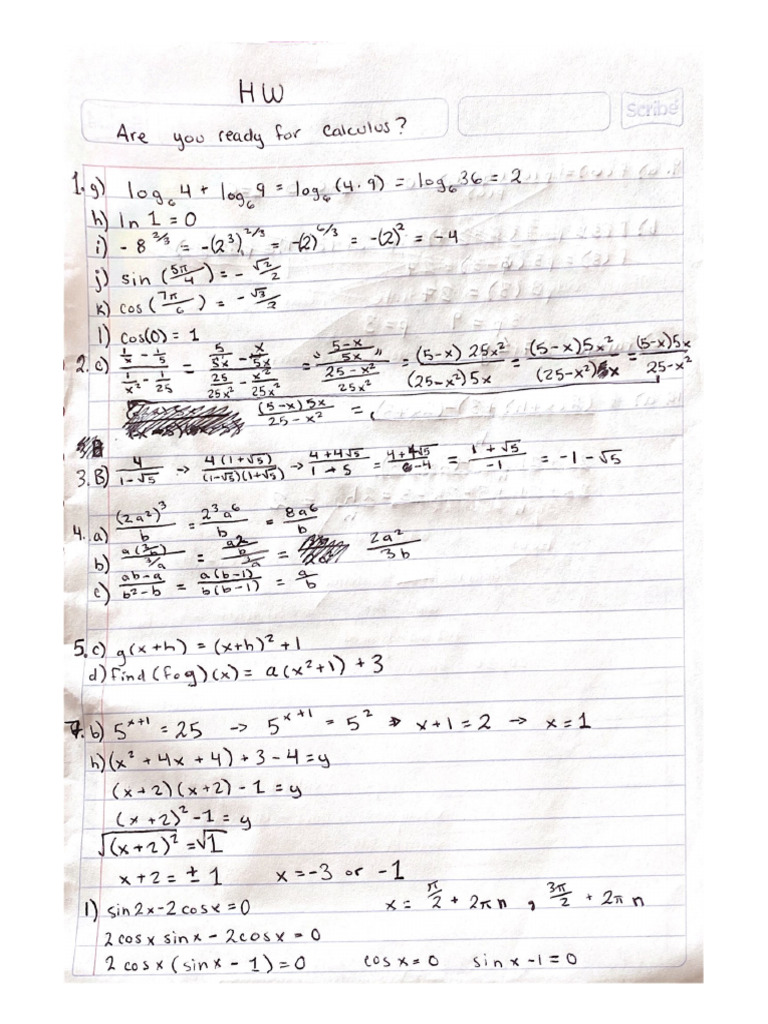 HW
Scribe
Are you ready for calculus?
1. g) log₆ 4 + log₆ 9 = log₆ (4 · 9) = log₆ 36 = 2
h) ln 1 = 0
i) - 8^(2/3) = -(2³)^(2/3) = -(2)^(6/3) = -(2)² = -4
j) sin (5π/4) = - √2/2
k) cos (7π/6) = - √3/2
l) cos(0) = 1
2. c) (1/x - 1/5)/(1/x² - 1/25) = (5/5x - x/5x)/(25/25x² - x²/25x²) = ((5-x)/5x)/((25-x²)/25x²) = (5-x) 25x²/(25-x²)5x = (5-x)5x²/(25-x²)x = (5-x)5x/25-x²
(5-x)5x/25-x² =
3. B) 4/(1-√5) → 4(1+√5)/(1-√5)(1+√5) → 4+4√5/1+5 = 4+4√5/-4 = 1+√5/-1 = -1-√5
4. a) (2a²)³/b = 2³a⁶/b = 8a⁶/b
b) a(2/b)/(3/a) = (a2/b)/(3/a) = 2a²/3b
e) ab-a/b²-b = a(b-1)/b(b-1) = a/b
5. c) g(x+h) = (x+h)² + 1
d) find (fog)(x) = a(x²+1) + 3
7. b) 5^(x+1) = 25 → 5^(x+1) = 5² → x+1 = 2 → x = 1
h) (x² + 4x + 4) + 3 - 4 = y
(x+2)(x+2) - 1 = y
(x+2)² - 1 = y
√(x+2)² = √1
x+2 = ± 1 x = -3 or -1
l) sin2x - 2cosx = 0 x = π/2 + 2πn , 3π/2 + 2πn
2cosx sinx - 2cosx = 0
2cosx (sinx - 1) = 0 cosx = 0 sinx - 1 = 0